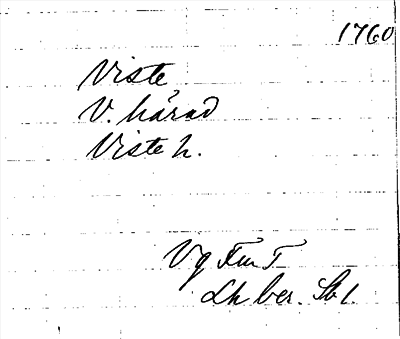 1760
Viste
V. härad
Viste h.
Vg Fm T
Lh ber. Sb 1.